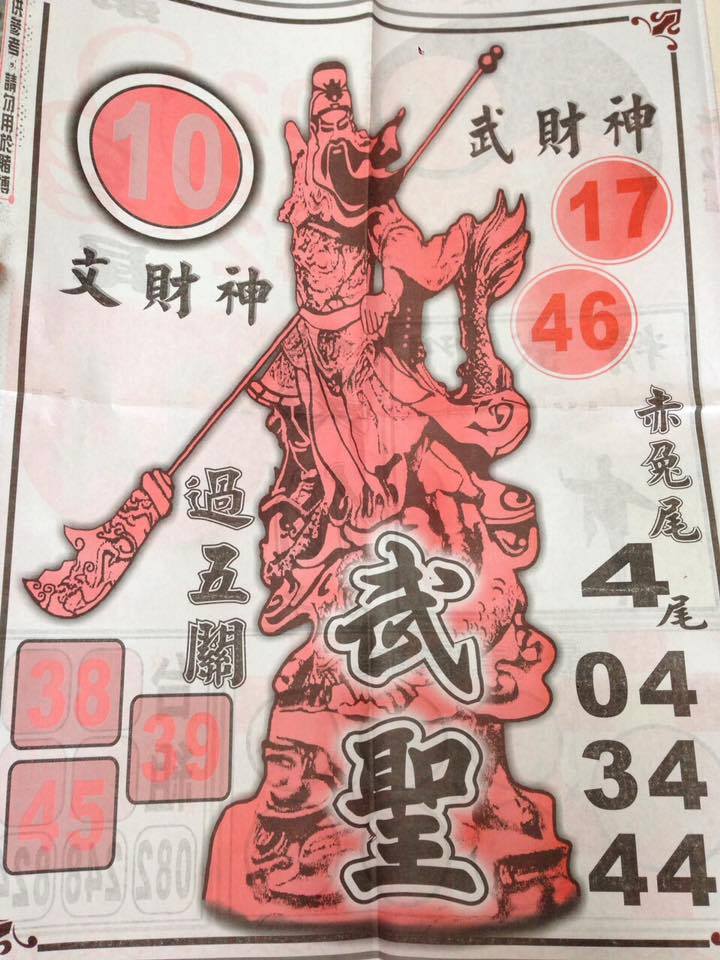 供參考，請勿用於賭博
10
文財神
武財神
17
46
赤兔尾
4尾
04
34
44
過五關
38
39
45
武聖
082
248